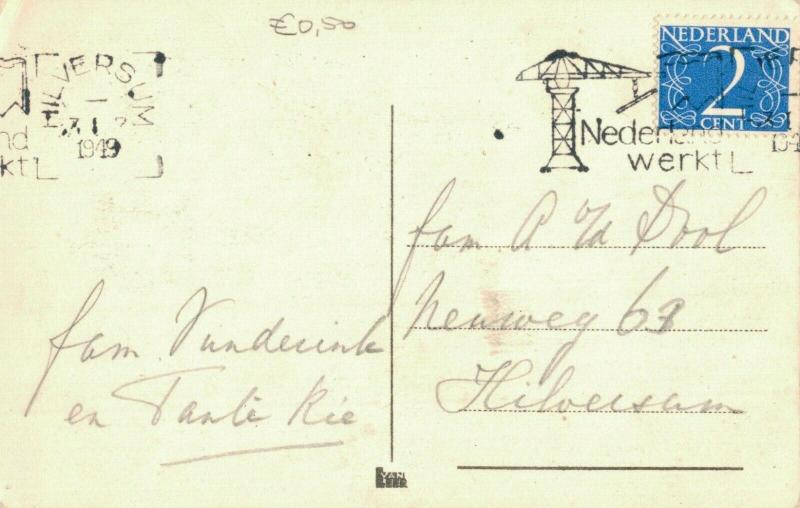 €0,50
HILVERSUM
1949
nd
kt
NEDERLAND
2
CENT
Nederland
werkt
fam. Vunderink
en Tante Rie
fam A v/d Pool
Neuweg 63
Hilversum
VAN LEER